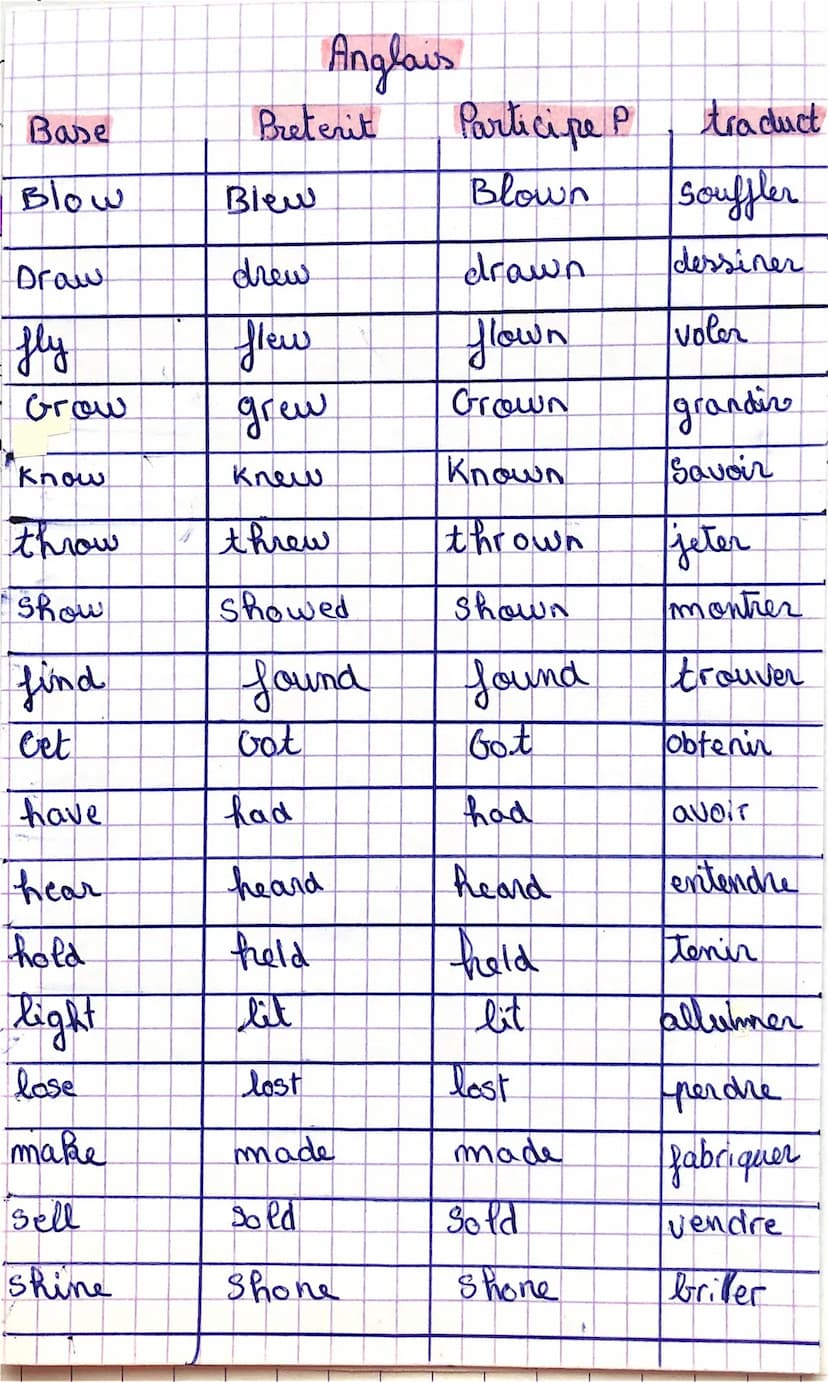 Anglais
Base Preterit Participe P traduct
Blow Blew Blown souffler
Draw drew drawn dessiner
fly flew flown voler
Grow grew Grown grandir
Know Knew Known Savoir
throw threw thrown jeter
Show Showed Shown montrer
find found found trouver
Get Got Got obtenir
have had had avoir
hear heard heard entendre
hold held held Tenir
light lit lit allumer
lose lost lost perdre
make made made fabriquer
sell sold sold vendre
shine Shone Shone briller